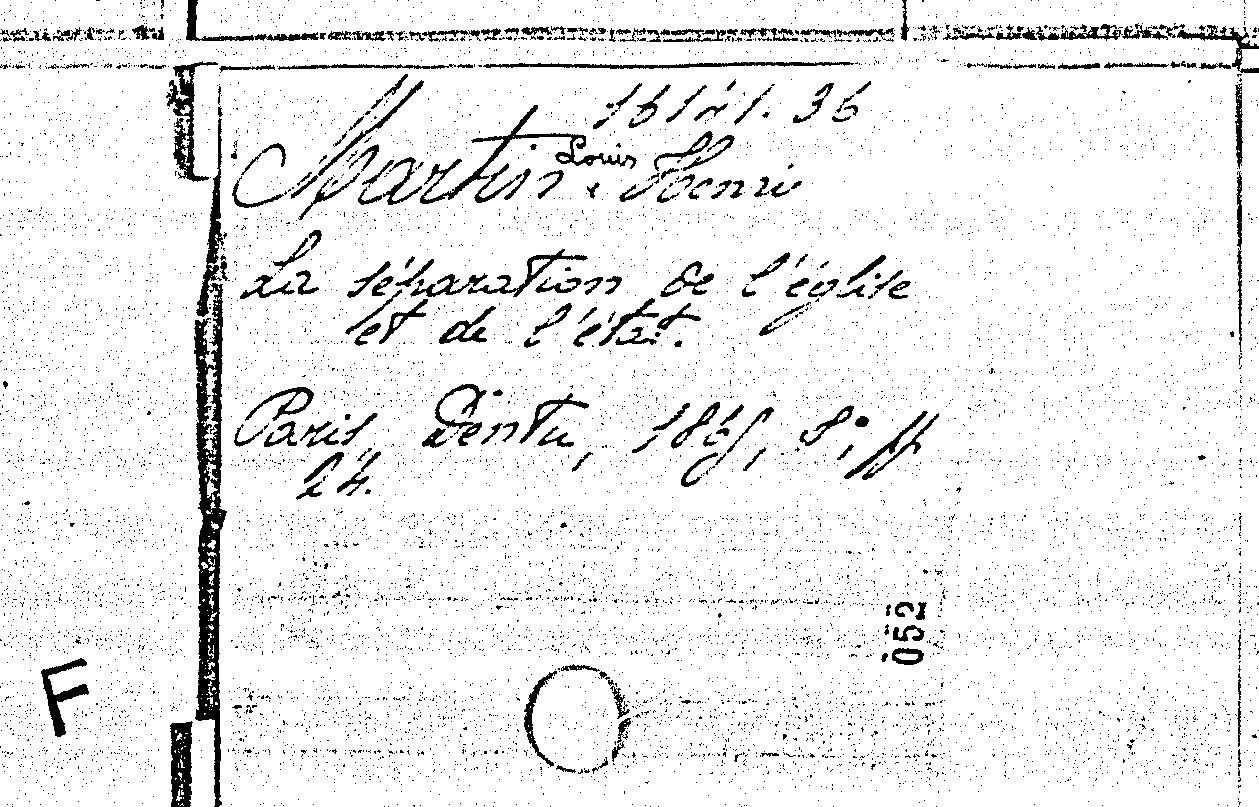 Martin Louis Henri
La séparation de l'église
et de l'état.
Paris, Dentu, 1865, 8°, pp
24.
052
F